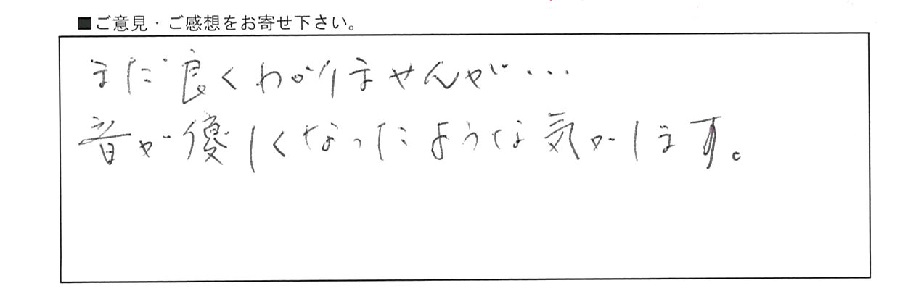 ■ご意見・ご感想をお寄せ下さい。
まだ良くわかりませんが…
音が優しくなったような気がします。